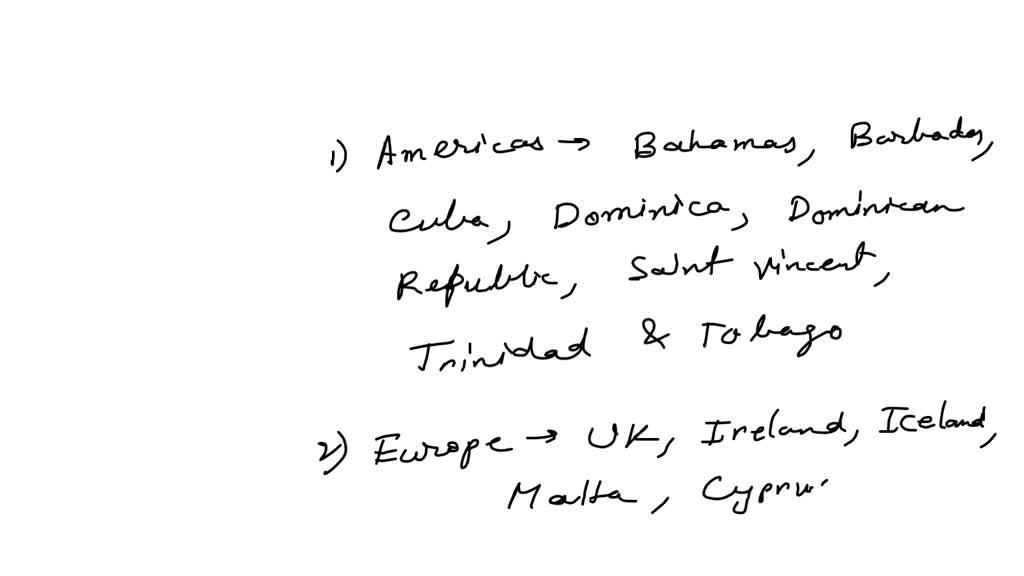 1) Americas → Bahamas, Barbados,
Cuba, Dominica, Dominican
Republic, Saint Vincent,
Trinidad & Tobago
2) Europe → UK, Ireland, Iceland,
Malta, Cyprus